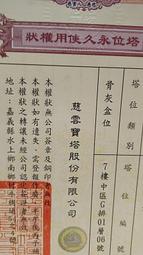 塔位永久使用權狀
塔位編號
7樓中區G排01層06號
塔位類別
骨灰盒位
慈雲寶塔股份有限公司
本權狀無公司簽章及鋼印者無效
本權狀如有遺失
本權狀之轉讓未經公司
地址：嘉義縣水上鄉